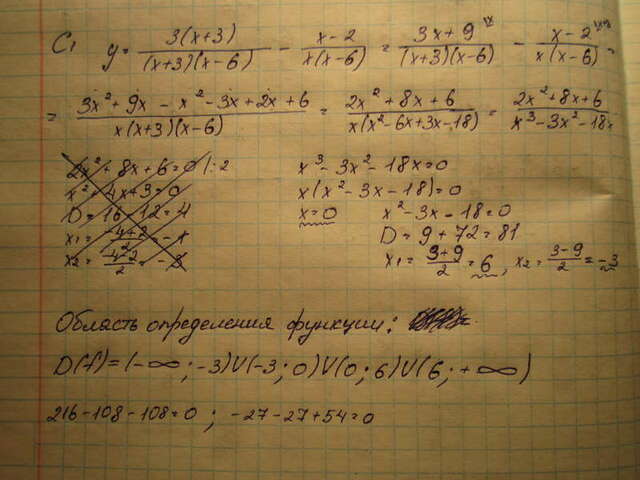 C₁ y = 3(x+3)/((x+3)(x-6)) - (x-2)/(x(x-6)) = (3x+9)/((x+3)(x-6)) - (x-2)/(x(x-6)) =
= (3x²+9x - x²-3x+2x+6)/(x(x+3)(x-6)) = (2x²+8x+6)/(x(x²-6x+3x-18)) = (2x²+8x+6)/(x³-3x²-18x
2x²+8x+6=0 |:2
x²+4x+3=0
D=16-12=4
x₁ = (-4+2)/2 = -1
x₂ = (-4-2)/2 = -3
x³-3x²-18x=0
x(x²-3x-18)=0
x=0 x²-3x-18=0
D=9+72=81
x₁ = (3+9)/2 = 6, x₂ = (3-9)/2 = -3
Область определения функции:
D(f)=(-∞;-3)U(-3;0)U(0;6)U(6;+∞)
216-108-108=0; -27-27+54=0